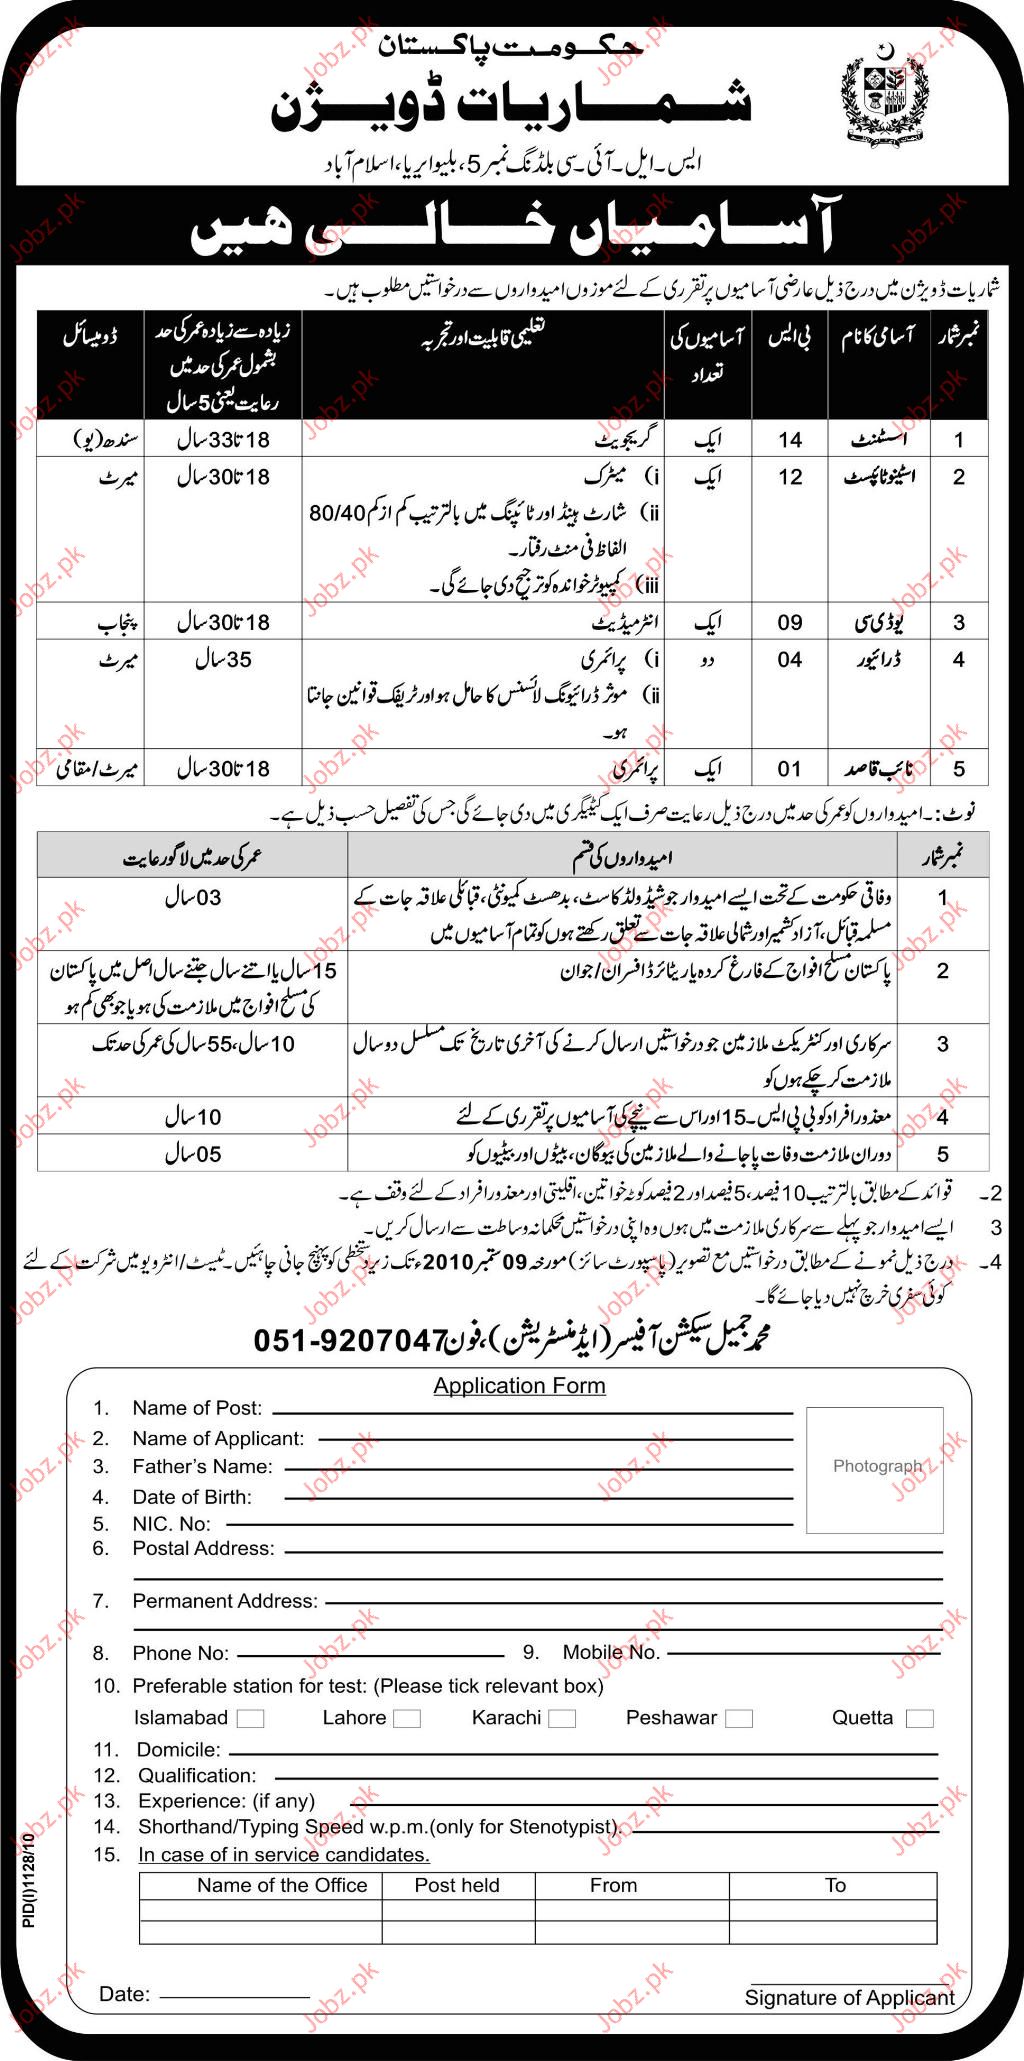 حکومت پاکستان
شماریات ڈویژن
ایس۔ایل۔آئی۔سی بلڈنگ نمبر 5، بلیو ایریا، اسلام آباد
آسامیاں خالی ھیں
شماریات ڈویژن میں درج ذیل عارضی آسامیوں پر تقرری کے لئے موزوں امیدواروں سے درخواستیں مطلوب ہیں۔
نمبر شمار آسامی کا نام بی ایس آسامیوں کی تعداد تعلیمی قابلیت اور تجربہ زیادہ سے زیادہ عمر کی حد بشمول عمر کی حد میں رعایت یعنی 5 سال ڈومیسائل
1 اسسٹنٹ 14 ایک گریجویٹ 18 تا 33 سال سندھ (یو)
2 اسٹینو ٹائپسٹ 12 ایک i) میٹرک 18 تا 30 سال میرٹ
ii) شارٹ ہینڈ اور ٹائپنگ میں بالترتیب کم از کم 80/40
الفاظ فی منٹ رفتار۔
iii) کمپیوٹر خواندہ کو ترجیح دی جائے گی۔
3 یو ڈی سی 09 ایک انٹرمیڈیٹ 18 تا 30 سال پنجاب
4 ڈرائیور 04 دو i) پرائمری 35 سال میرٹ
ii) موثر ڈرائیونگ لائسنس کا حامل ہو اور ٹریفک قوانین جانتا
ہو۔
5 نائب قاصد 01 ایک پرائمری 18 تا 30 سال میرٹ/مقامی
نوٹ:۔ امیدواروں کو عمر کی حد میں درج ذیل رعایت صرف ایک کیٹیگری میں دی جائے گی جس کی تفصیل حسب ذیل ہے۔
نمبر شمار امیدواروں کی قسم عمر کی حد میں لاگو رعایت
1 وفاقی حکومت کے تحت ایسے امیدوار جو شیڈولڈ کاسٹ، بدھسٹ کمیونٹی، قبائلی علاقہ جات کے 03 سال
مسلمہ قبائل، آزاد کشمیر اور شمالی علاقہ جات سے تعلق رکھتے ہوں کو تمام آسامیوں میں
2 پاکستان مسلح افواج کے فارغ کردہ یا ریٹائرڈ افسران/جوان 15 سال یا اتنے سال جتنے سال اصل میں پاکستان
کی مسلح افواج میں ملازمت کی ہو یا جو بھی کم ہو
3 سرکاری اور کنٹریکٹ ملازمین جو درخواستیں ارسال کرنے کی آخری تاریخ تک مسلسل دو سال 10 سال، 55 سال کی عمر کی حد تک
ملازمت کر چکے ہوں کو
4 معذور افراد کو بی پی ایس۔15 اور اس سے نیچے کی آسامیوں پر تقرری کے لئے 10 سال
5 دوران ملازمت وفات پا جانے والے ملازمین کی بیوگان، بیٹوں اور بیٹیوں کو 05 سال
2۔ قوائد کے مطابق بالترتیب 10 فیصد، 5 فیصد اور 2 فیصد کوٹہ خواتین، اقلیتی اور معذور افراد کے لئے وقف ہے۔
3 ایسے امیدوار جو پہلے سے سرکاری ملازمت میں ہوں وہ اپنی درخواستیں محکمانہ وساطت سے ارسال کریں۔
4۔ درج ذیل نمونے کے مطابق درخواستیں مع تصویر (پاسپورٹ سائز) مورخہ 09 ستمبر 2010ء تک زیر دستخطی کو پہنچ جانی چاہئیں۔ ٹیسٹ/انٹرویو میں شرکت کے لئے
کوئی سفری خرچ نہیں دیا جائے گا۔
محمد جمیل سیکشن آفیسر (ایڈمنسٹریشن)، فون 051-9207047
Application Form
1. Name of Post:
2. Name of Applicant:
3. Father's Name:
Photograph
4. Date of Birth:
5. NIC. No:
6. Postal Address:
7. Permanent Address:
8. Phone No: 9. Mobile No.
10. Preferable station for test: (Please tick relevant box)
Islamabad Lahore Karachi Peshawar Quetta
11. Domicile:
12. Qualification:
13. Experience: (if any)
14. Shorthand/Typing Speed w.p.m.(only for Stenotypist).
15. In case of in service candidates.
Name of the Office Post held From To
Date:
Signature of Applicant
PID(I)1128/10
Jobz.pk